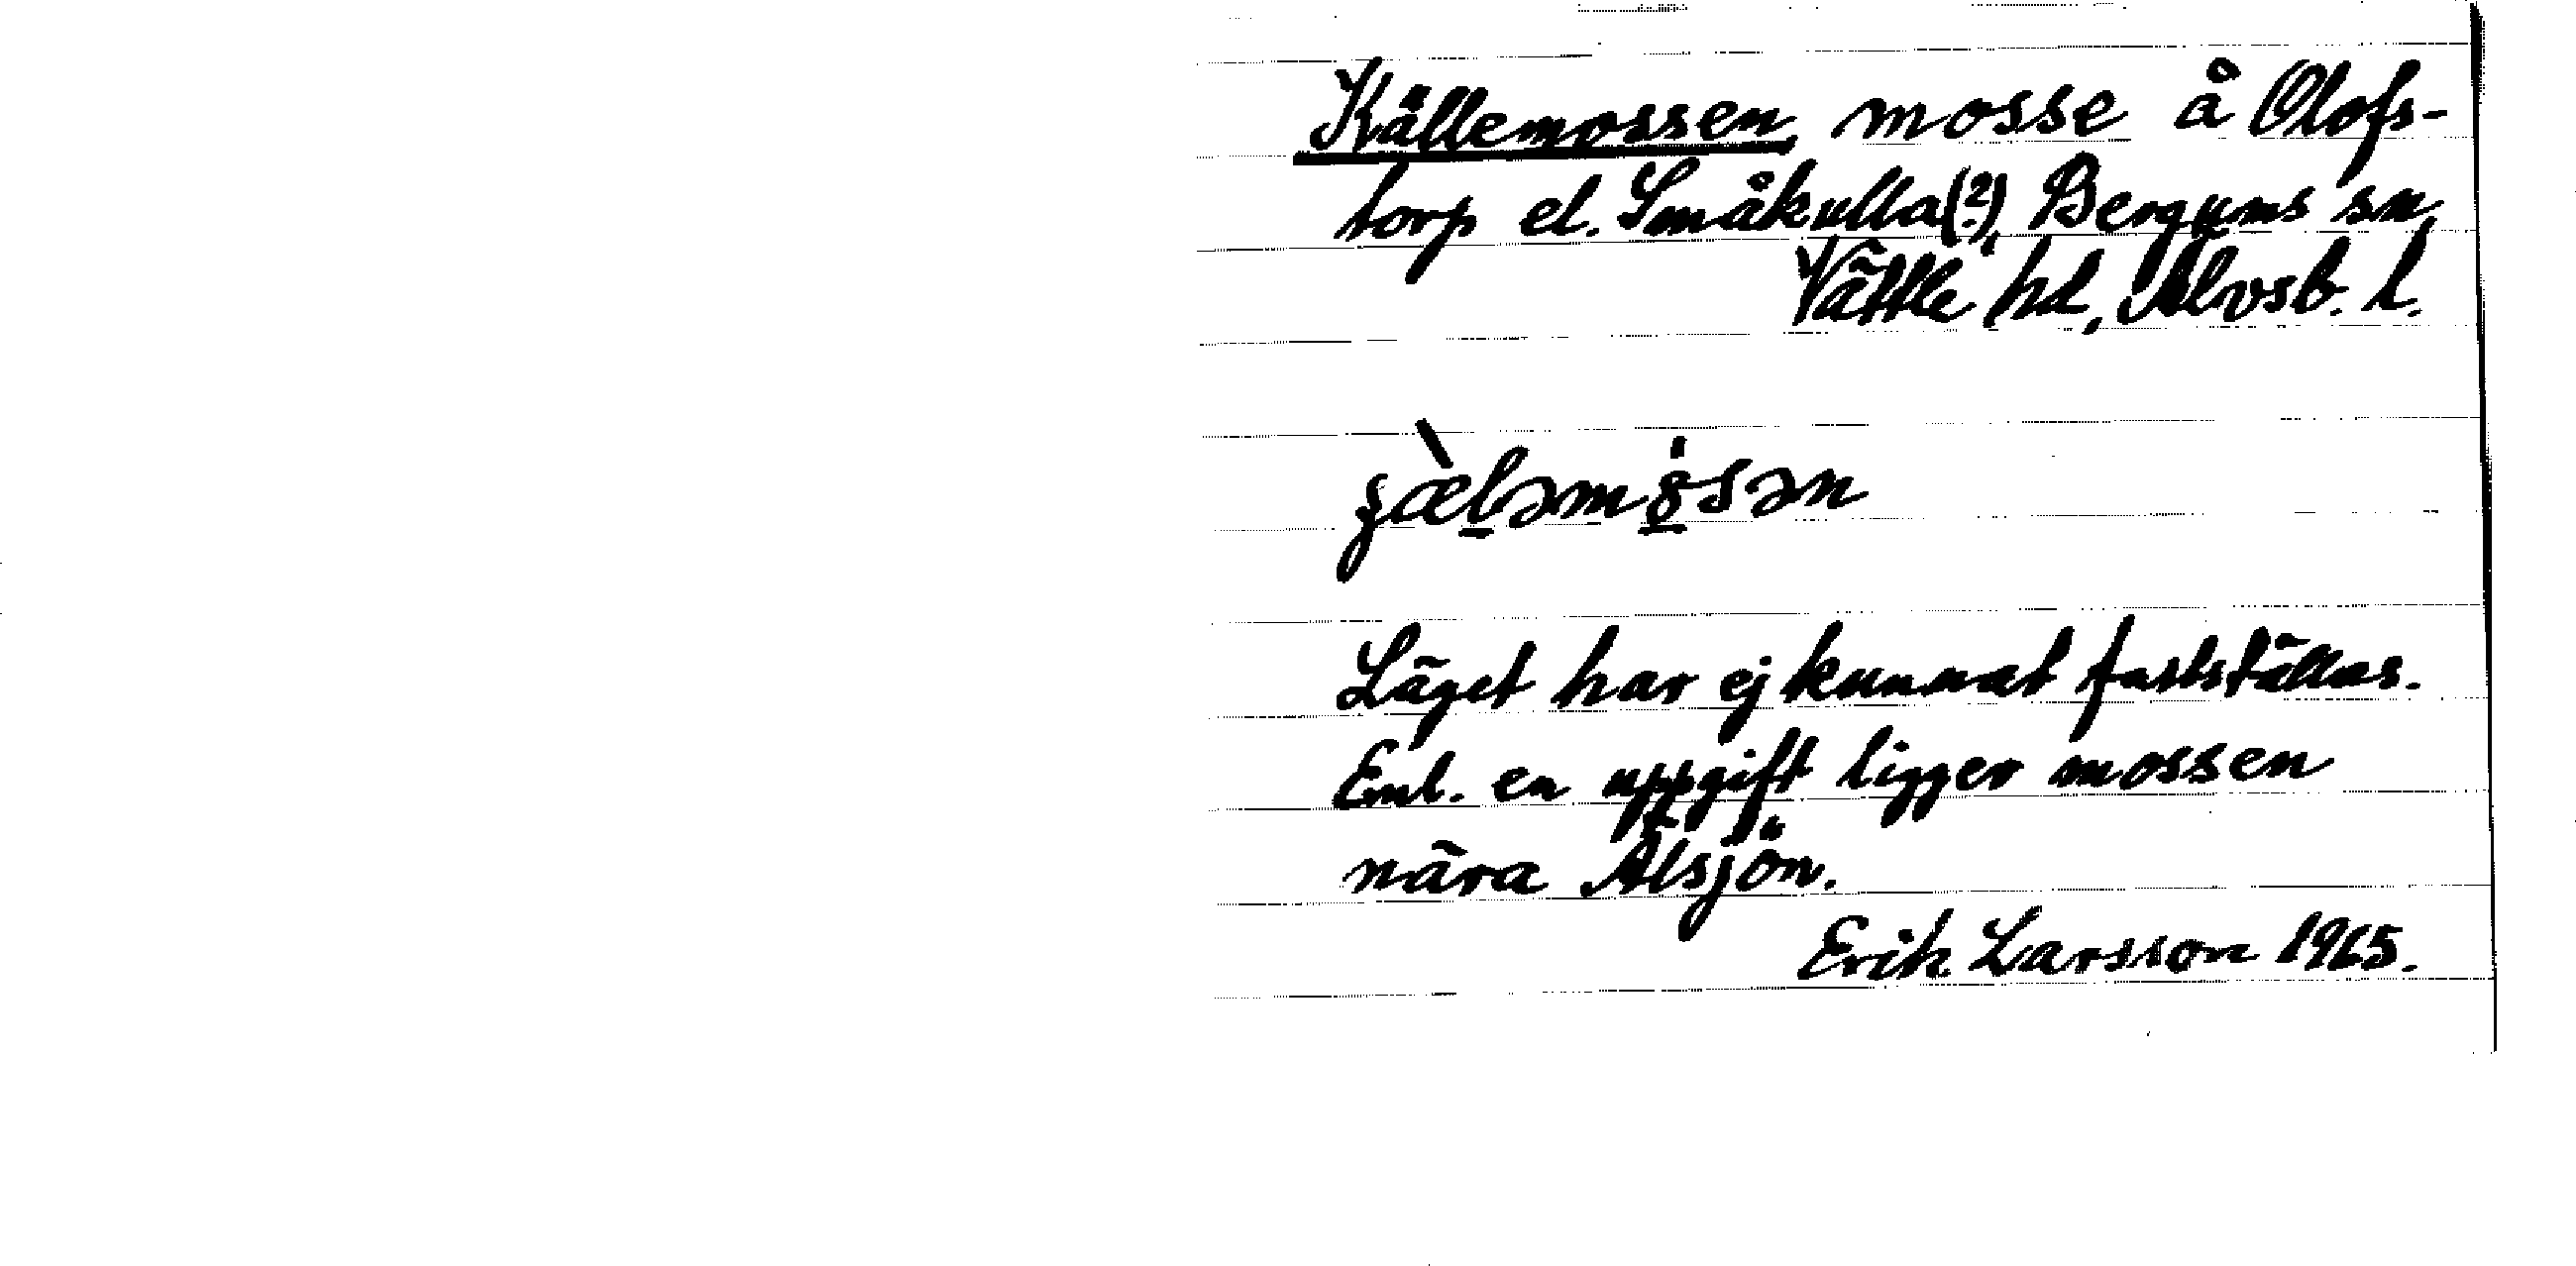 Källemossen, mosse å Olofs-
torp el. Småkulla(?), Bergums sn,
Vättle hd, Älvsb. l.
Läget har ej kunnat fastställas.
Enl. en uppgift ligger mossen
nära Älsjön.
Erik Larsson 1965.